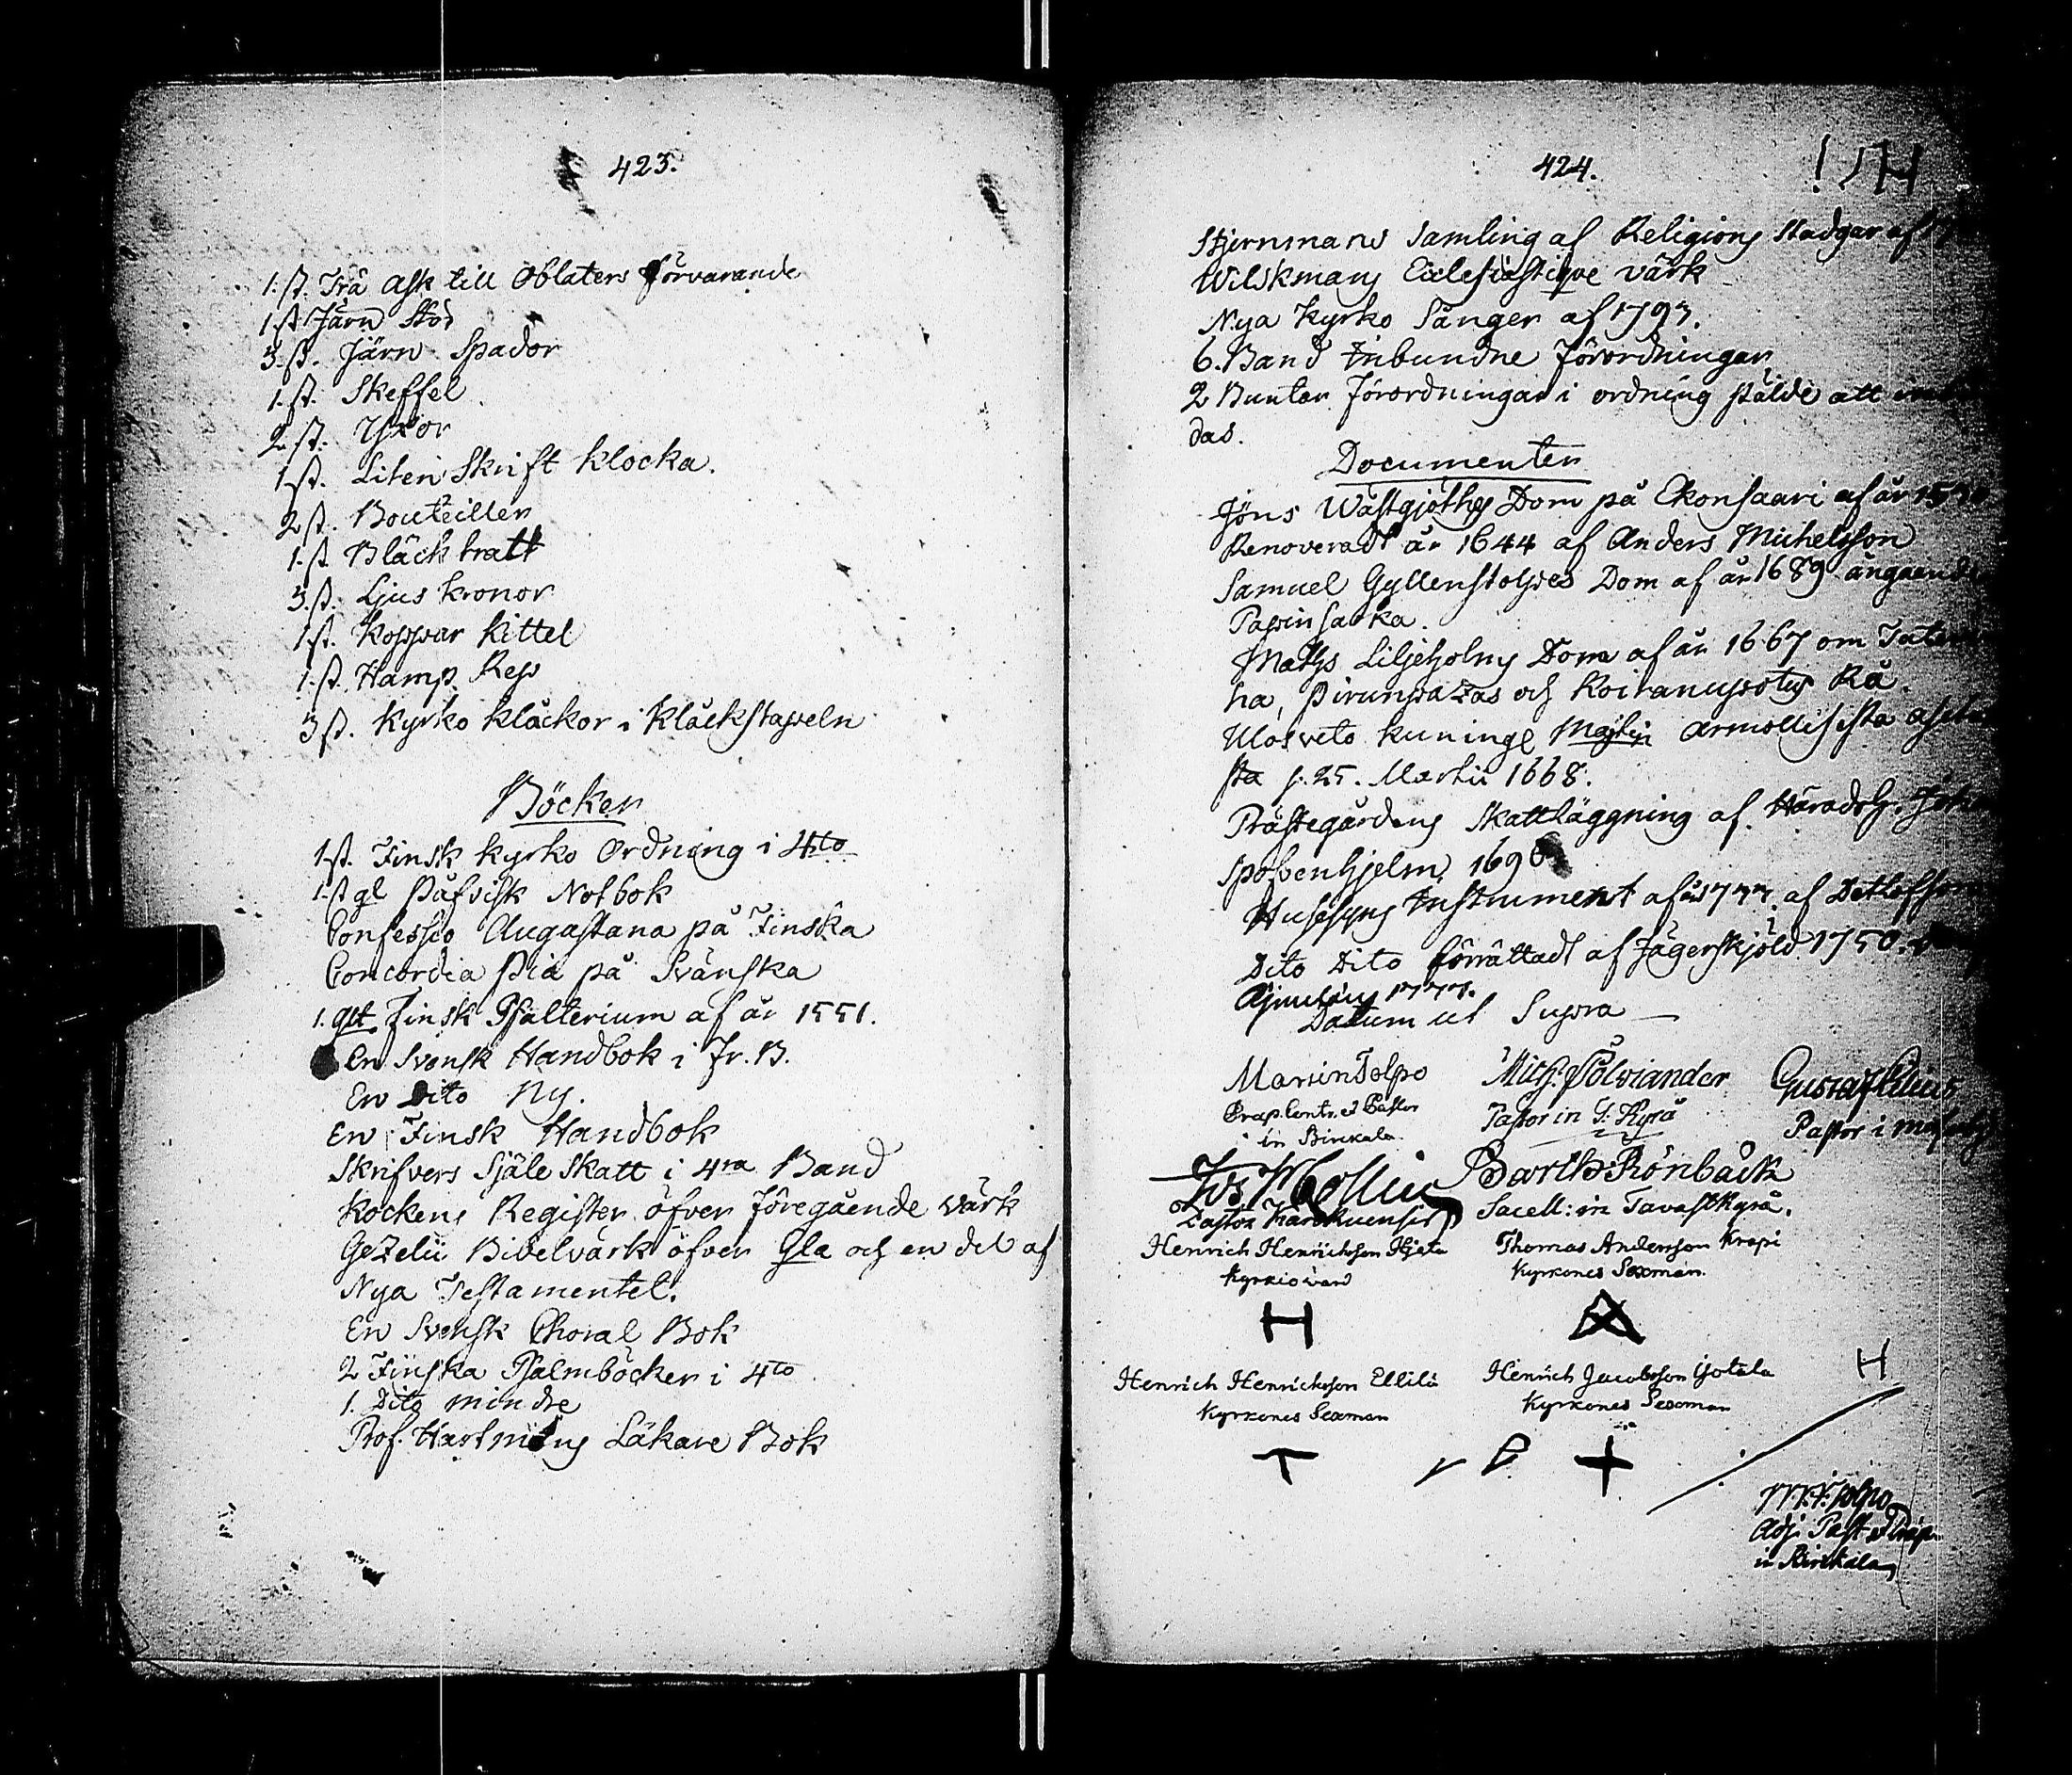 423.
1. st. Trä ask till Oblaters förvarande
1 st Järn Stör
3. st. Järn Spador
1. st. Skeffel
2 st. Yxor
1 st. Liten Skrift klocka.
2 st. Bouteiller
1. st Bläck tratt
3. st. Ljus kronor
1 st. Koppar kittel
1. st. Hamp Rep
3 st. Kyrko klåckor i Klåckstapeln
Böcker
1 st. Finsk kyrko Ordning i 4to
1. st gl Påfvisk Notbok
Confessio Augastana på Finska
Concordia Pia på Svänska
1. glt Finsk Psalterium af år 1551.
En Svensk Handbok i Fr. B.
En Dito Ny.
En Finsk Handbok
Skrifvers Själe Skatt i 4ra Band
Kockens Register öfver föregående värk
Gezelii Bibelvärk öfver Gla och en del af
Nya Testamentet.
En Svensk Choral Bok
2 Finska Psalmböcker i 4to
1. Dito mindre
Prof. Hartmans Läkare Bok
424.
Stjernmans Samling af Religions Stadgar af
Wilskmans Ecclesiastique värk
Nya Kyrko Sånger af 1793.
6. Band Inbundne Förordningar
2 Buntar Förordningar i ordning stälde att
das.
Documenter
Jöns Wästgjöthes Dom på Ekonsaari af år
Renoveradt år 1644 af Anders Michelsson
Samuel Gyllenstolpes Dom af år 1689 angaende
Papinsaska.
Maths Liljeholms Dom af år 1667 om
ha, Pirunpazas och Koiranupotus Rå.
Ulosveto kuninge Maj:tin Armollisesta
sta p. 25. Martii 1668.
Prästegårdens Skattläggning af Häradsh.
Spofvenhjelm 1690
Husesyns Instrument af år 1777 af Detlofsson
Dito Dito förrättadt af Jägerskjöld 1750.
1777.
Datum ut Supra
Martin Tolpo
Præp. Contr. et Pastor
in Birckala
Mich: Polviander
Pastor in T: Kyrå
Gustaf
Pastor i
Jos Mollin
Pastor Karckuensis
Barth: Rönbäck
Sacell: in Tavastkyrå.
Henrich Henricksson Hjeta
Kyrkiovärd
Thomas Andersson Krapi
Kyrkones Sexman
H
Henrich Henricksson Ellilä
Kyrkones Sexman
Henrich Jacobsson Isotalo
Kyrkones Sexman
H
T
Tolpo
Adj. Past. et Præp.
in Birckala